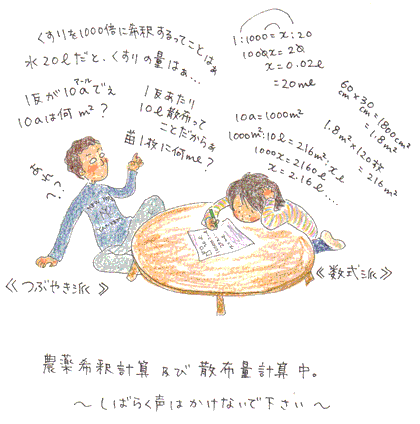 くすりを1000倍に希釈するってことはぁ
水20ℓだと、くすりの量はぁ…
1反が10aでぇ
アール
10aは何m²?
1反あたり
10ℓ散布って
ことだからぁ
苗1枚に何mℓ?
あれ
?
?
1:1000=x:20
1000x=20
x=0.02ℓ
=20mℓ
60cm×30cm=1800cm²
=1.8m²
1.8m²×120枚
=216m²
10a=1000m²
1000m²:10ℓ=216m²:xℓ
1000x=2160ℓ
x=2.16ℓ....
《つぶやき派》
《数式派》
農薬希釈計算及び散布量計算中。
〜しばらく声はかけないで下さい〜